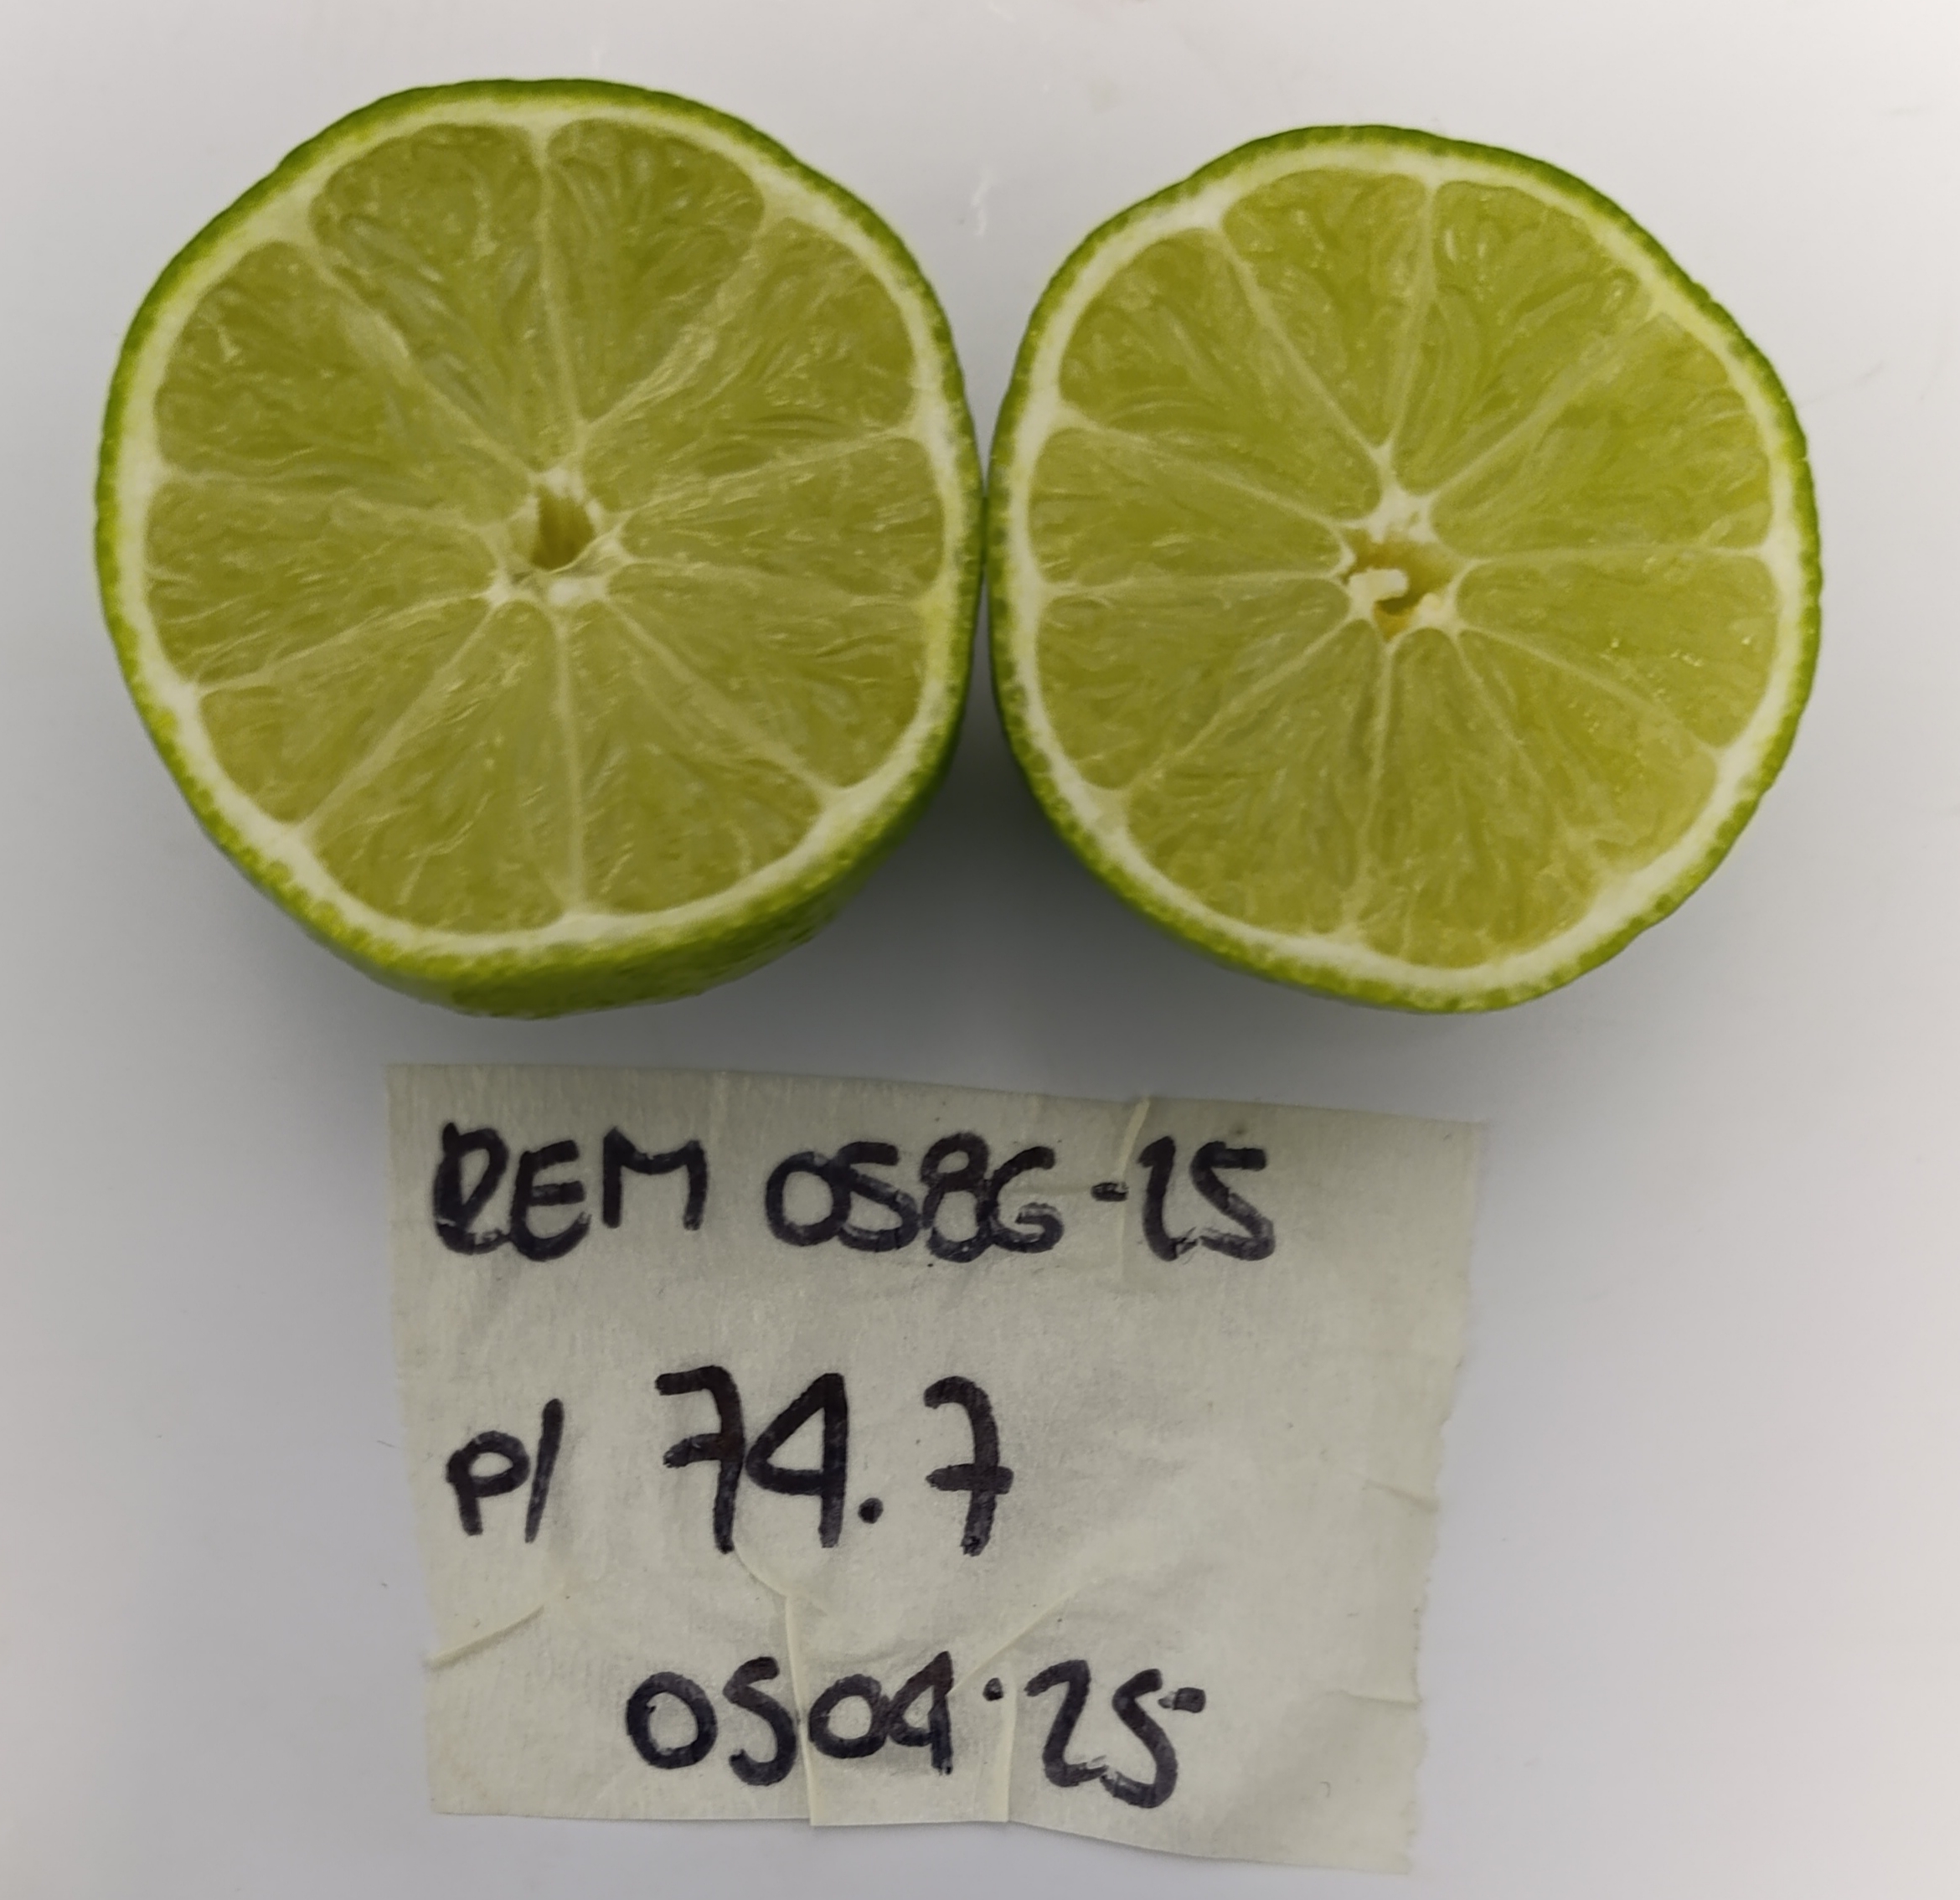 REM 0586-25
P/ 74.7
0504.25